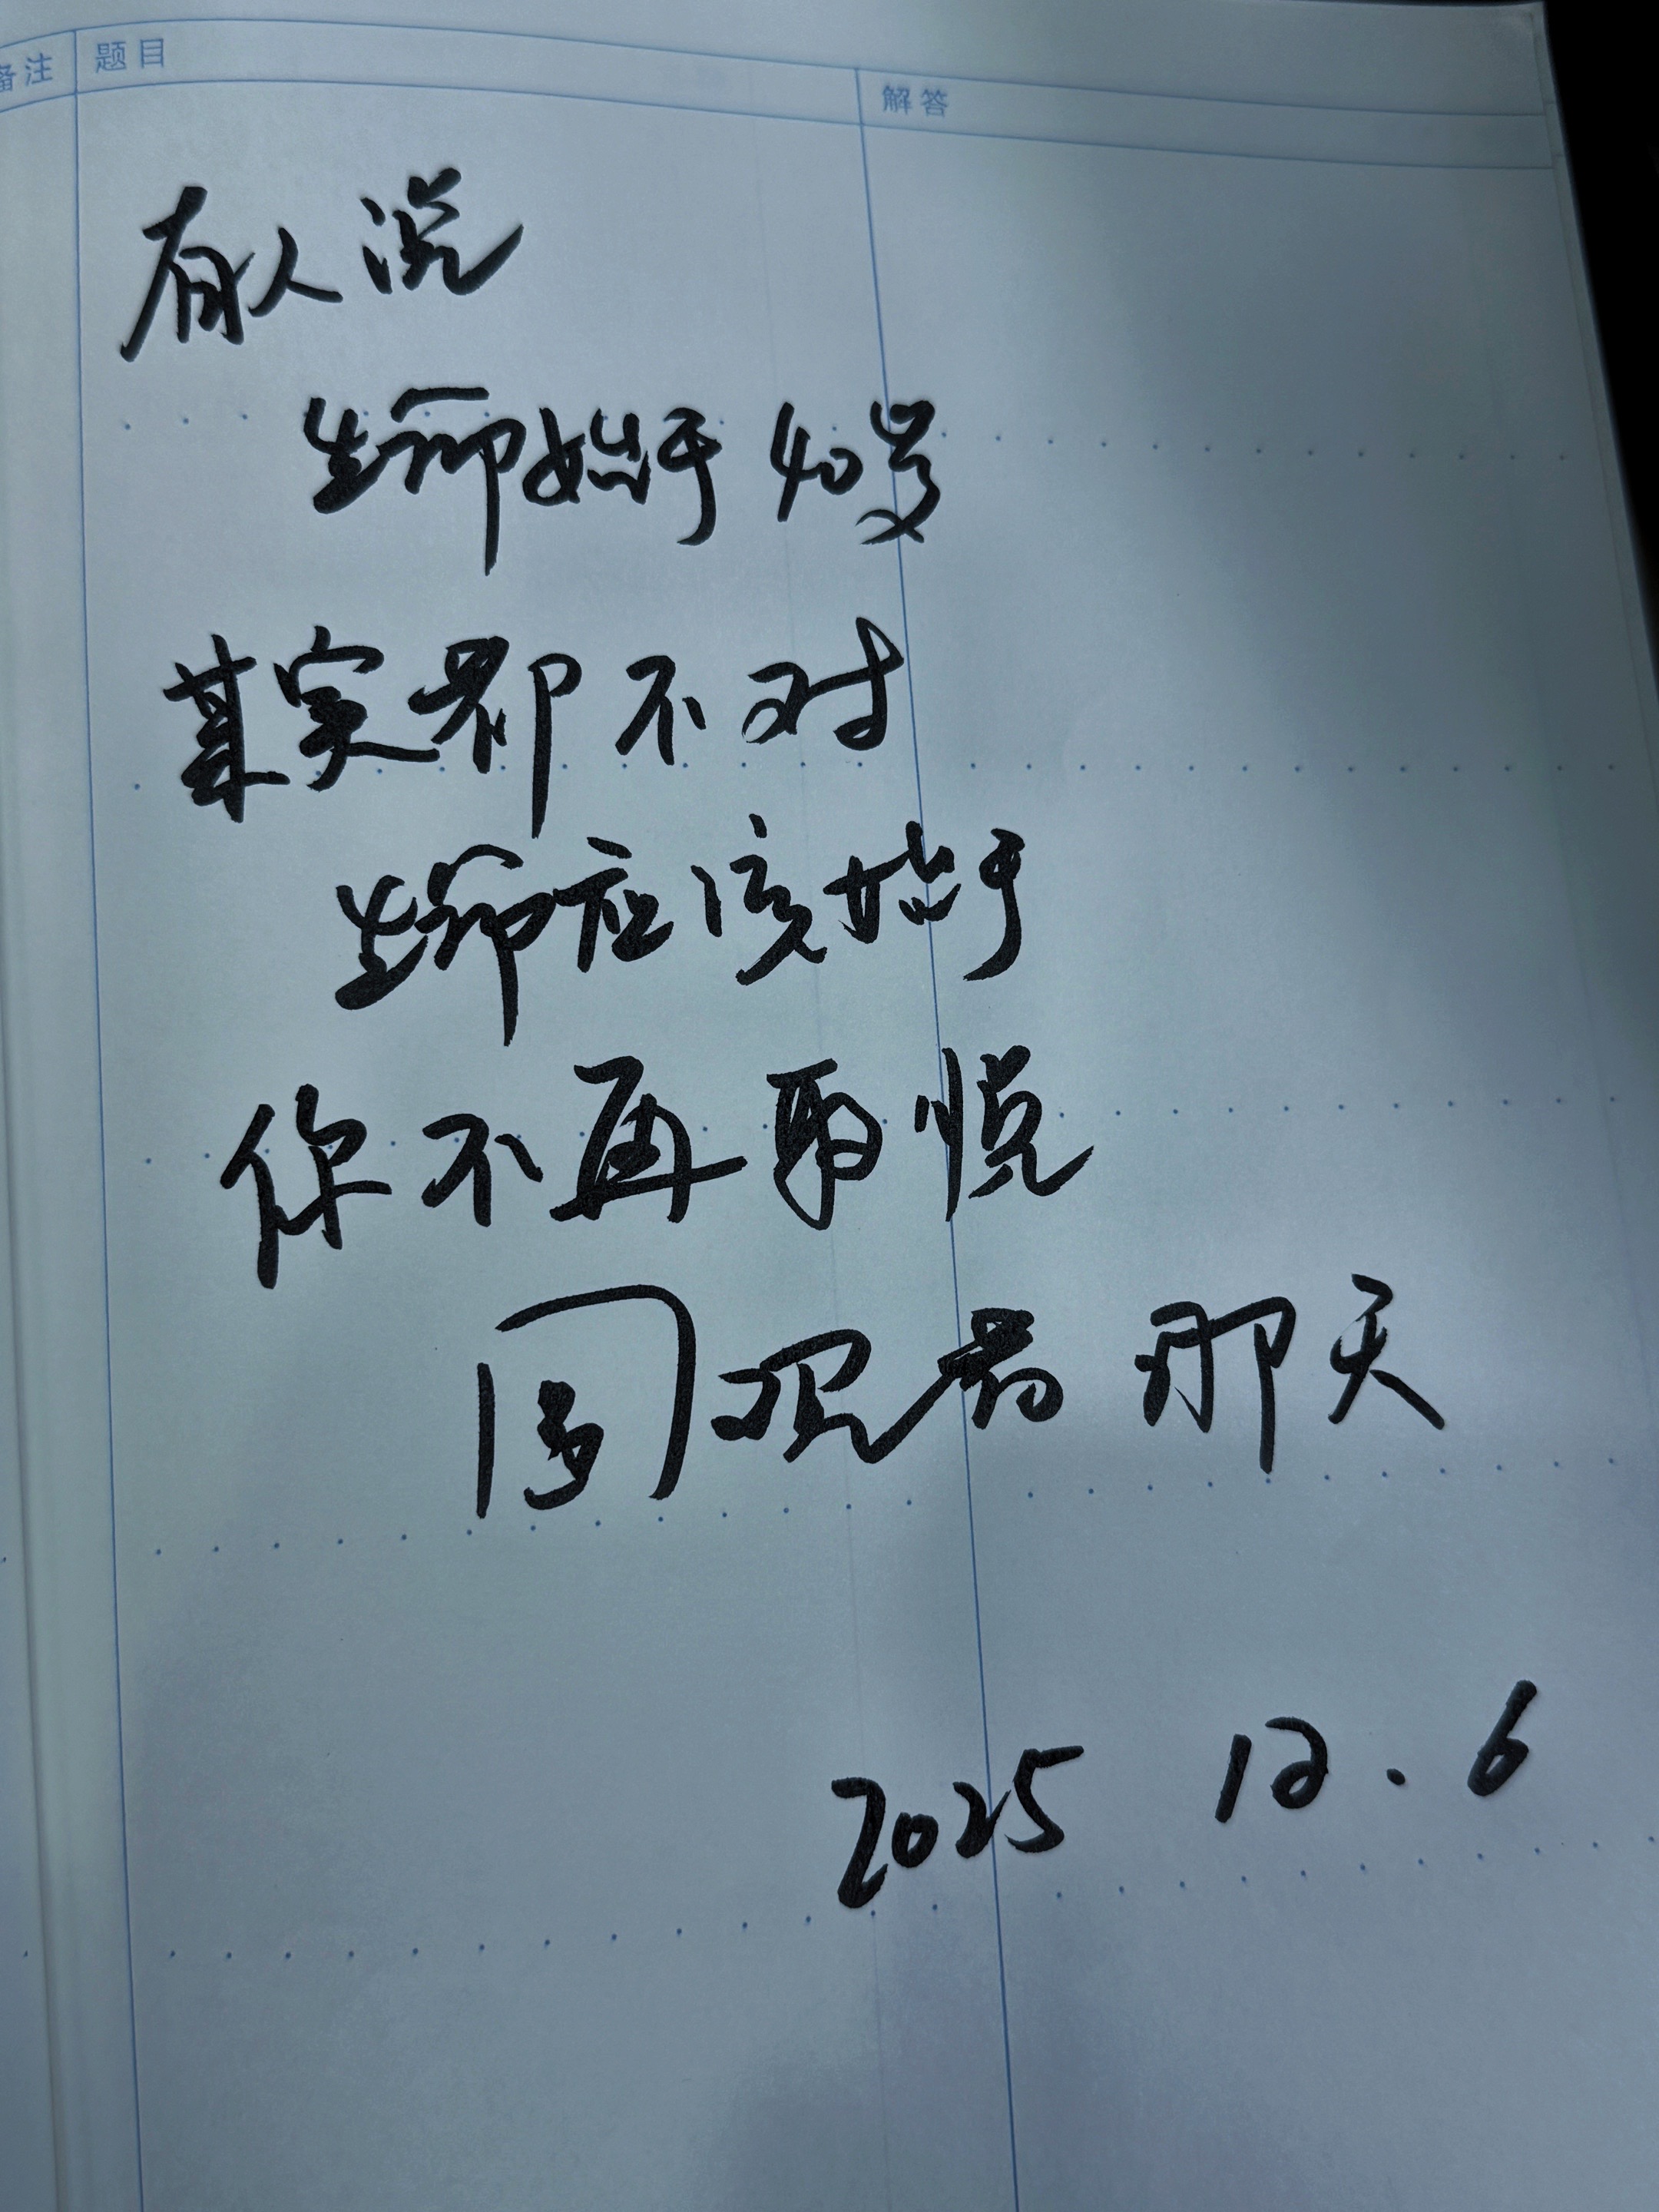 备注 题目 解答
有人说
生命始于40岁
其实都不对
生命应该始于
你不再取悦
周观者那天
2025 12.6